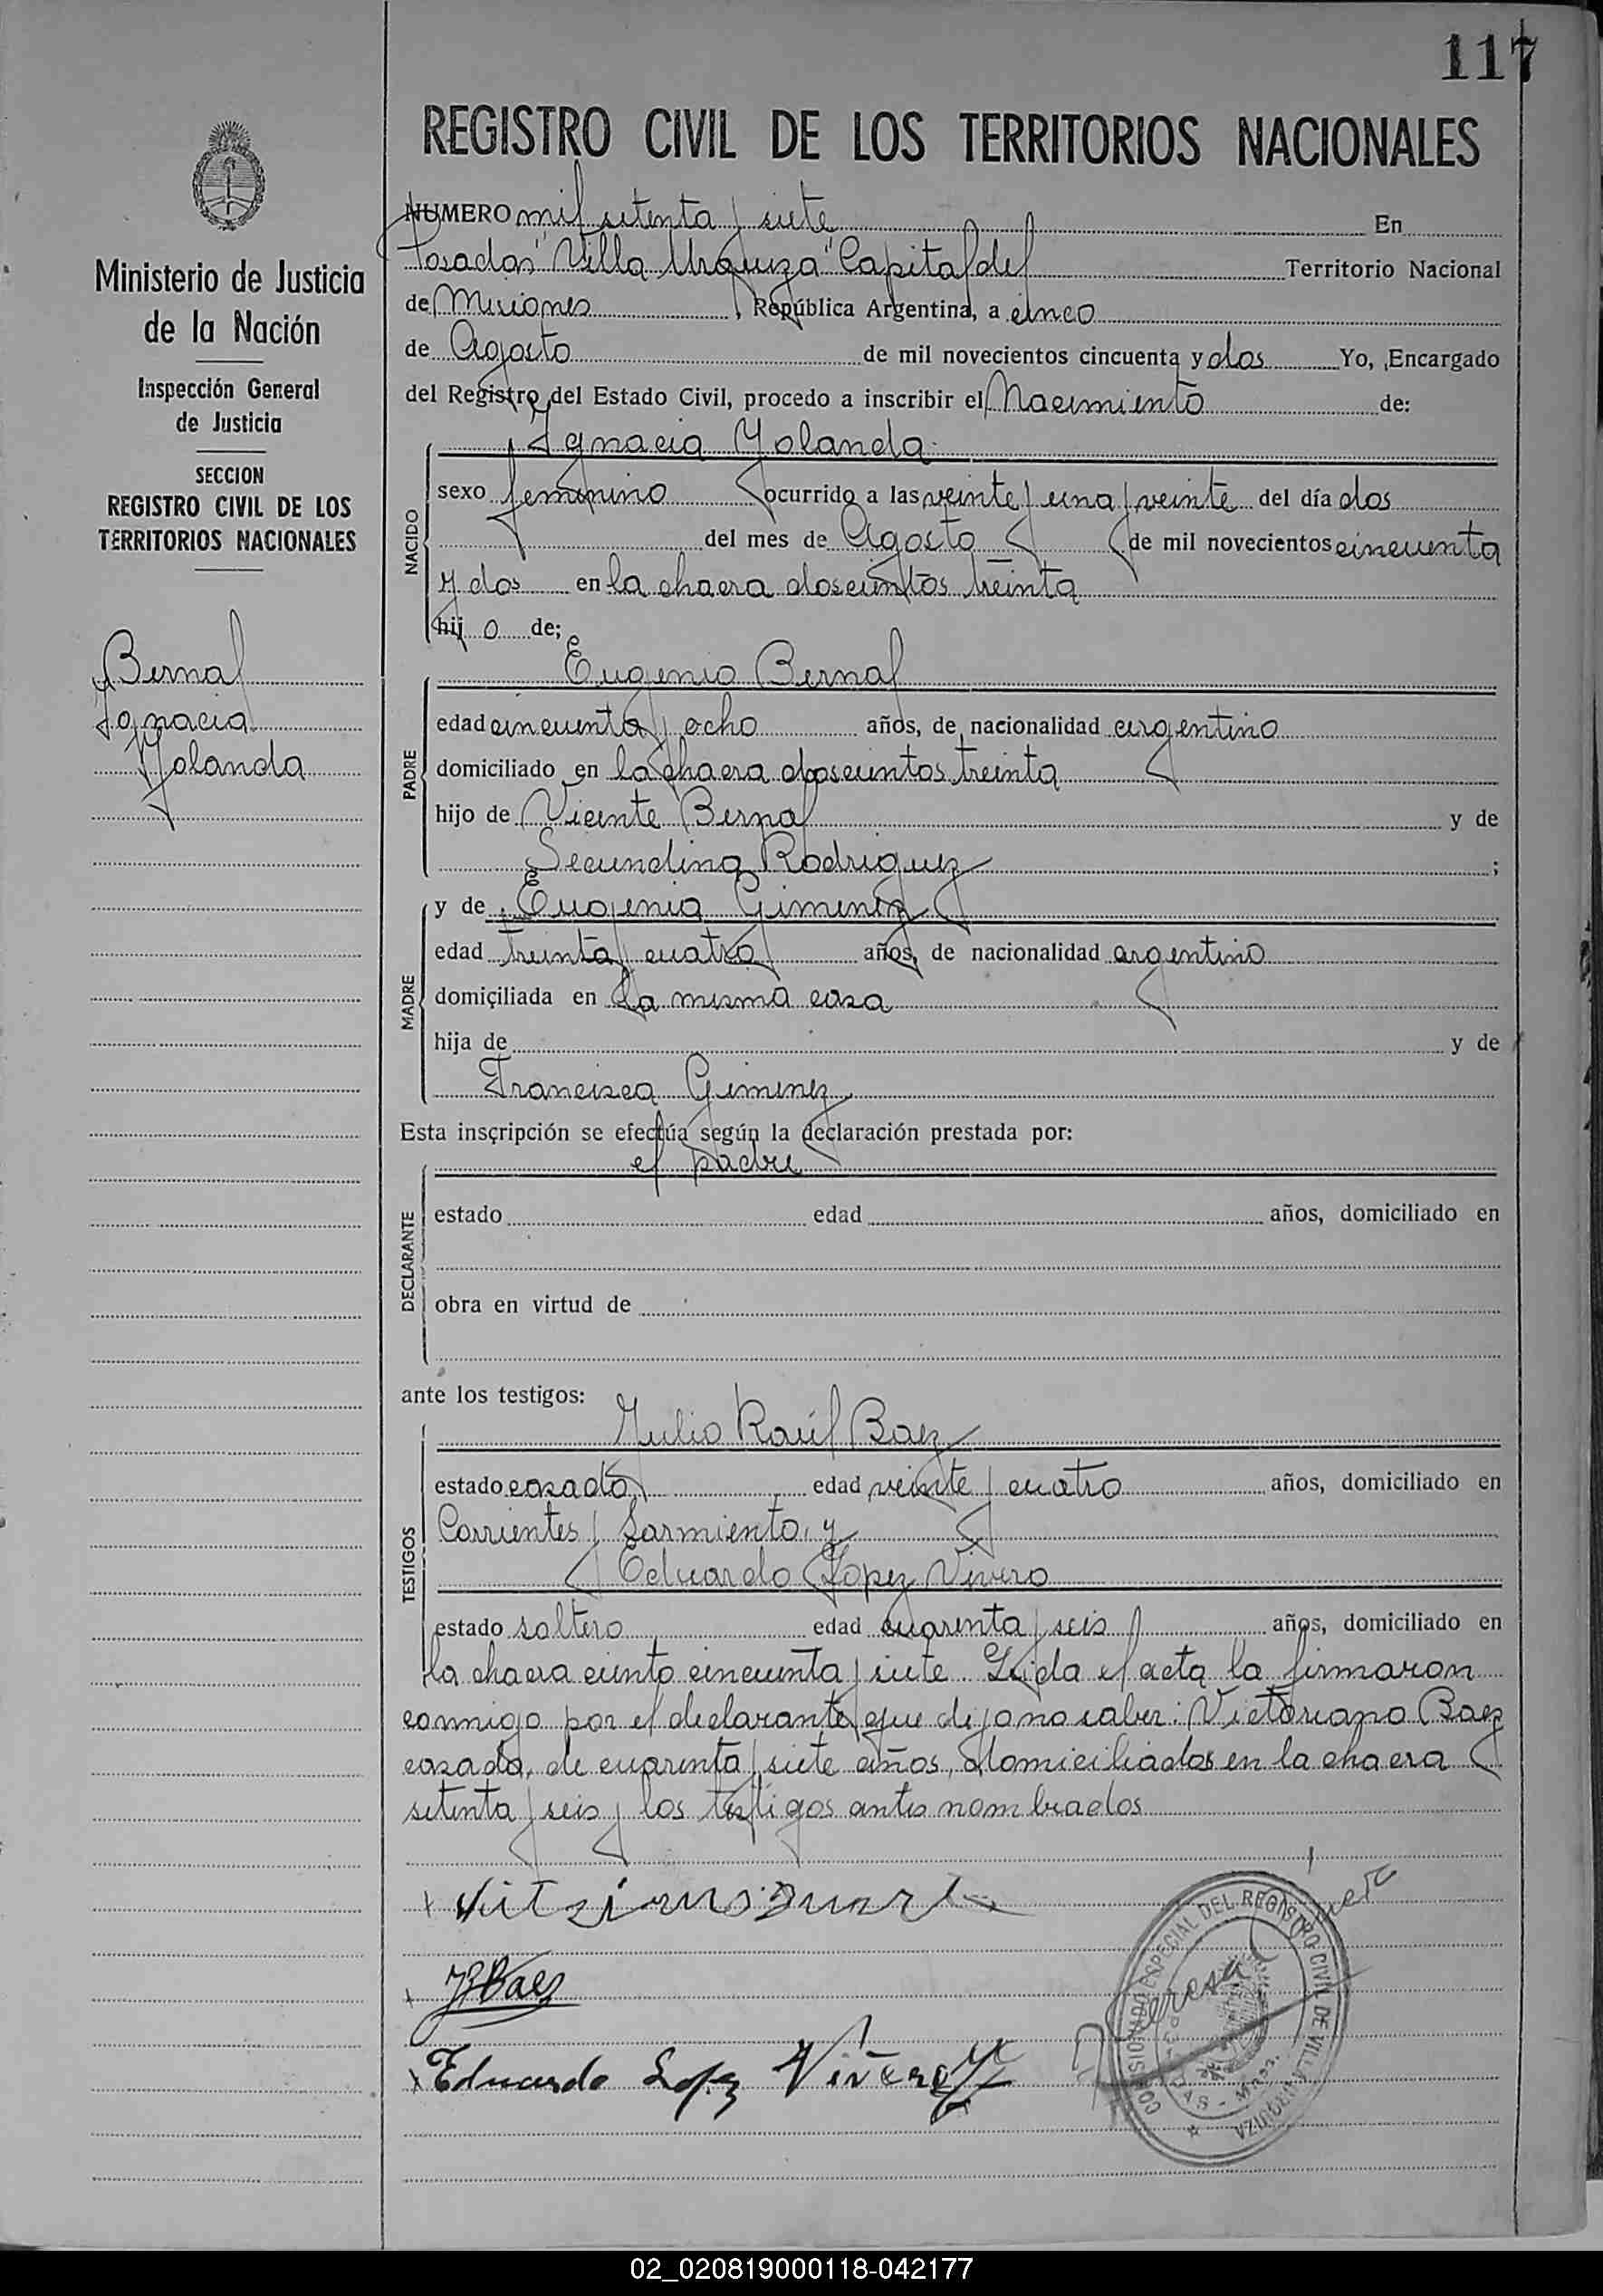 117
REGISTRO CIVIL DE LOS TERRITORIOS NACIONALES
Ministerio de Justicia
de la Nación
Inspección General
de Justicia
SECCION
REGISTRO CIVIL DE LOS
TERRITORIOS NACIONALES
Bernal
Ignacia
Yolanda
NUMERO mil setenta y siete En
Posadas "Villa Urquiza" Capital del Territorio Nacional
de Misiones, República Argentina, a cinco
de Agosto de mil novecientos cincuenta y dos Yo, Encargado
del Registro del Estado Civil, procedo a inscribir el Nacimiento de:
NACIDO
Ignacia Yolanda
sexo femenino ocurrido a las veinte y una y veinte del día dos
del mes de Agosto de mil novecientos cincuenta
y dos en la chacra doscientos treinta
hij o de;
PADRE
Eugenio Bernal
edad cincuenta y ocho años, de nacionalidad argentino
domiciliado en la chacra doscientos treinta
hijo de Vicente Bernal y de
Secundina Rodriguez ;
MADRE
y de Eugenia Gimenez
edad treinta y cuatro años, de nacionalidad argentino
domiciliada en la misma casa
hija de y de
Francisca Gimenez
Esta inscripción se efectúa según la declaración prestada por:
DECLARANTE
el padre
estado edad años, domiciliado en
obra en virtud de
ante los testigos:
TESTIGOS
Julio Raúl Baez
estado casado edad veinte y cuatro años, domiciliado en
Corrientes y Sarmiento, y
Eduardo Lopez Vivero
estado soltero edad cuarenta y seis años, domiciliado en
la chacra ciento cincuenta y siete. Leida el acta la firmaron
conmigo por el declarante que dijo no saber: Victoriano Baez
casado, de cuarenta y siete años, domiciliados en la chacra
setenta y seis y los testigos antes nombrados
JRBaez
Eduardo Lopez Viñero
COMISIONADO ESPECIAL DEL REGISTRO CIVIL DE VILLA URQUIZA
02_020819000118-042177